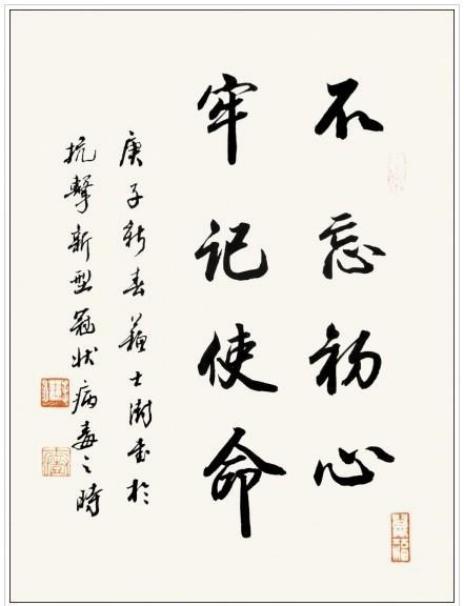 不忘初心
牢记使命
庚子新春苏士澍书於
抗擊新型冠状病毒之時